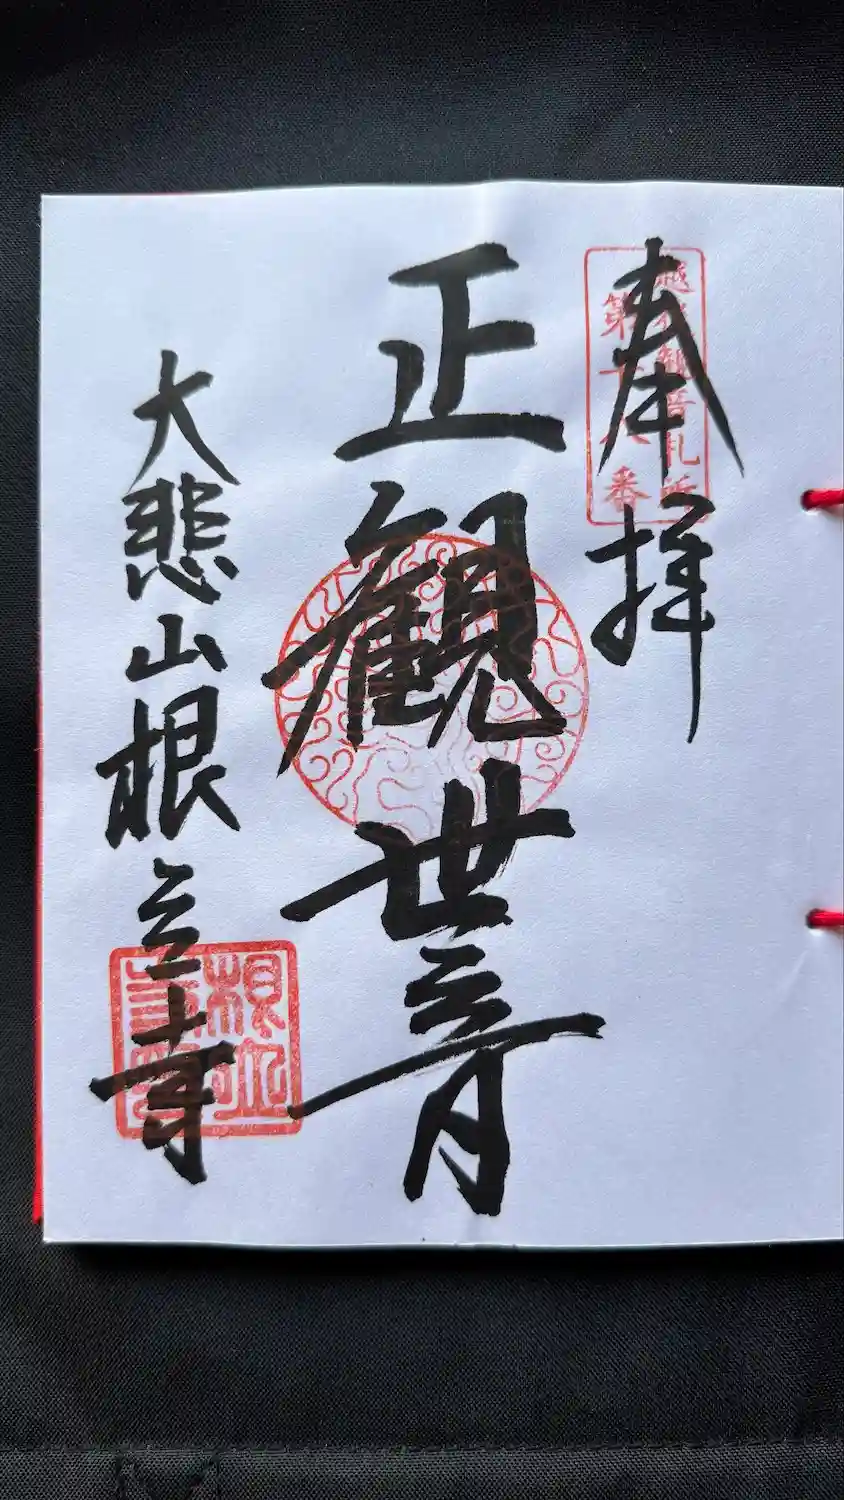 奉拝
越後観音札所
第十八番
正観世音
大悲山根立寺